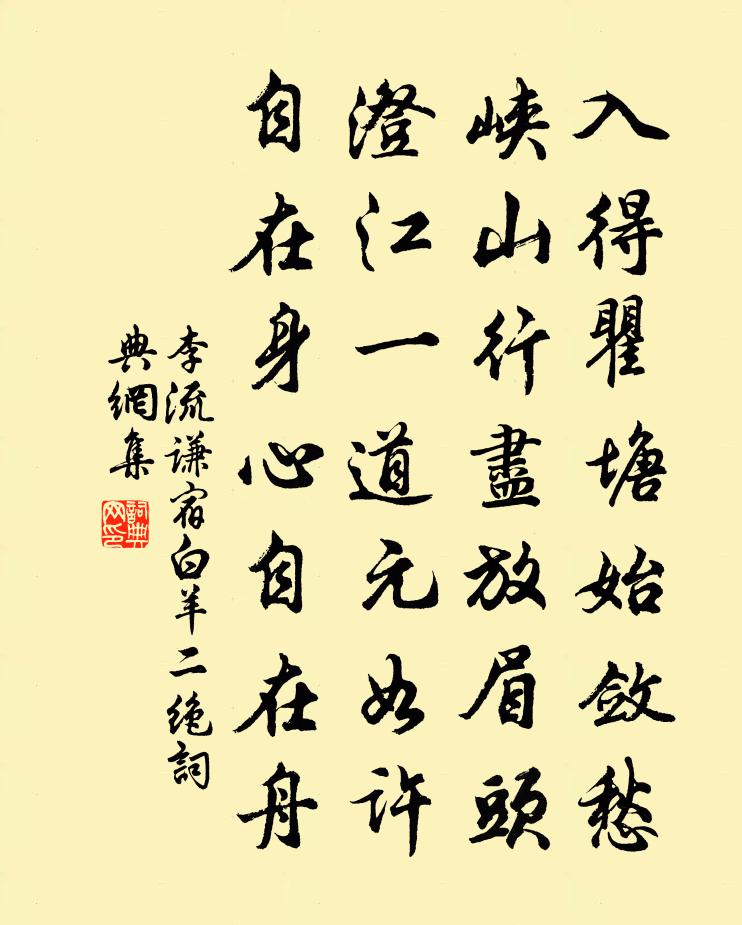 入得瞿塘始斂愁
峽山行盡放眉頭
澄江一道元如許
自在身心自在舟
李流谦宿白羊二绝詞
典網集
詞典网印